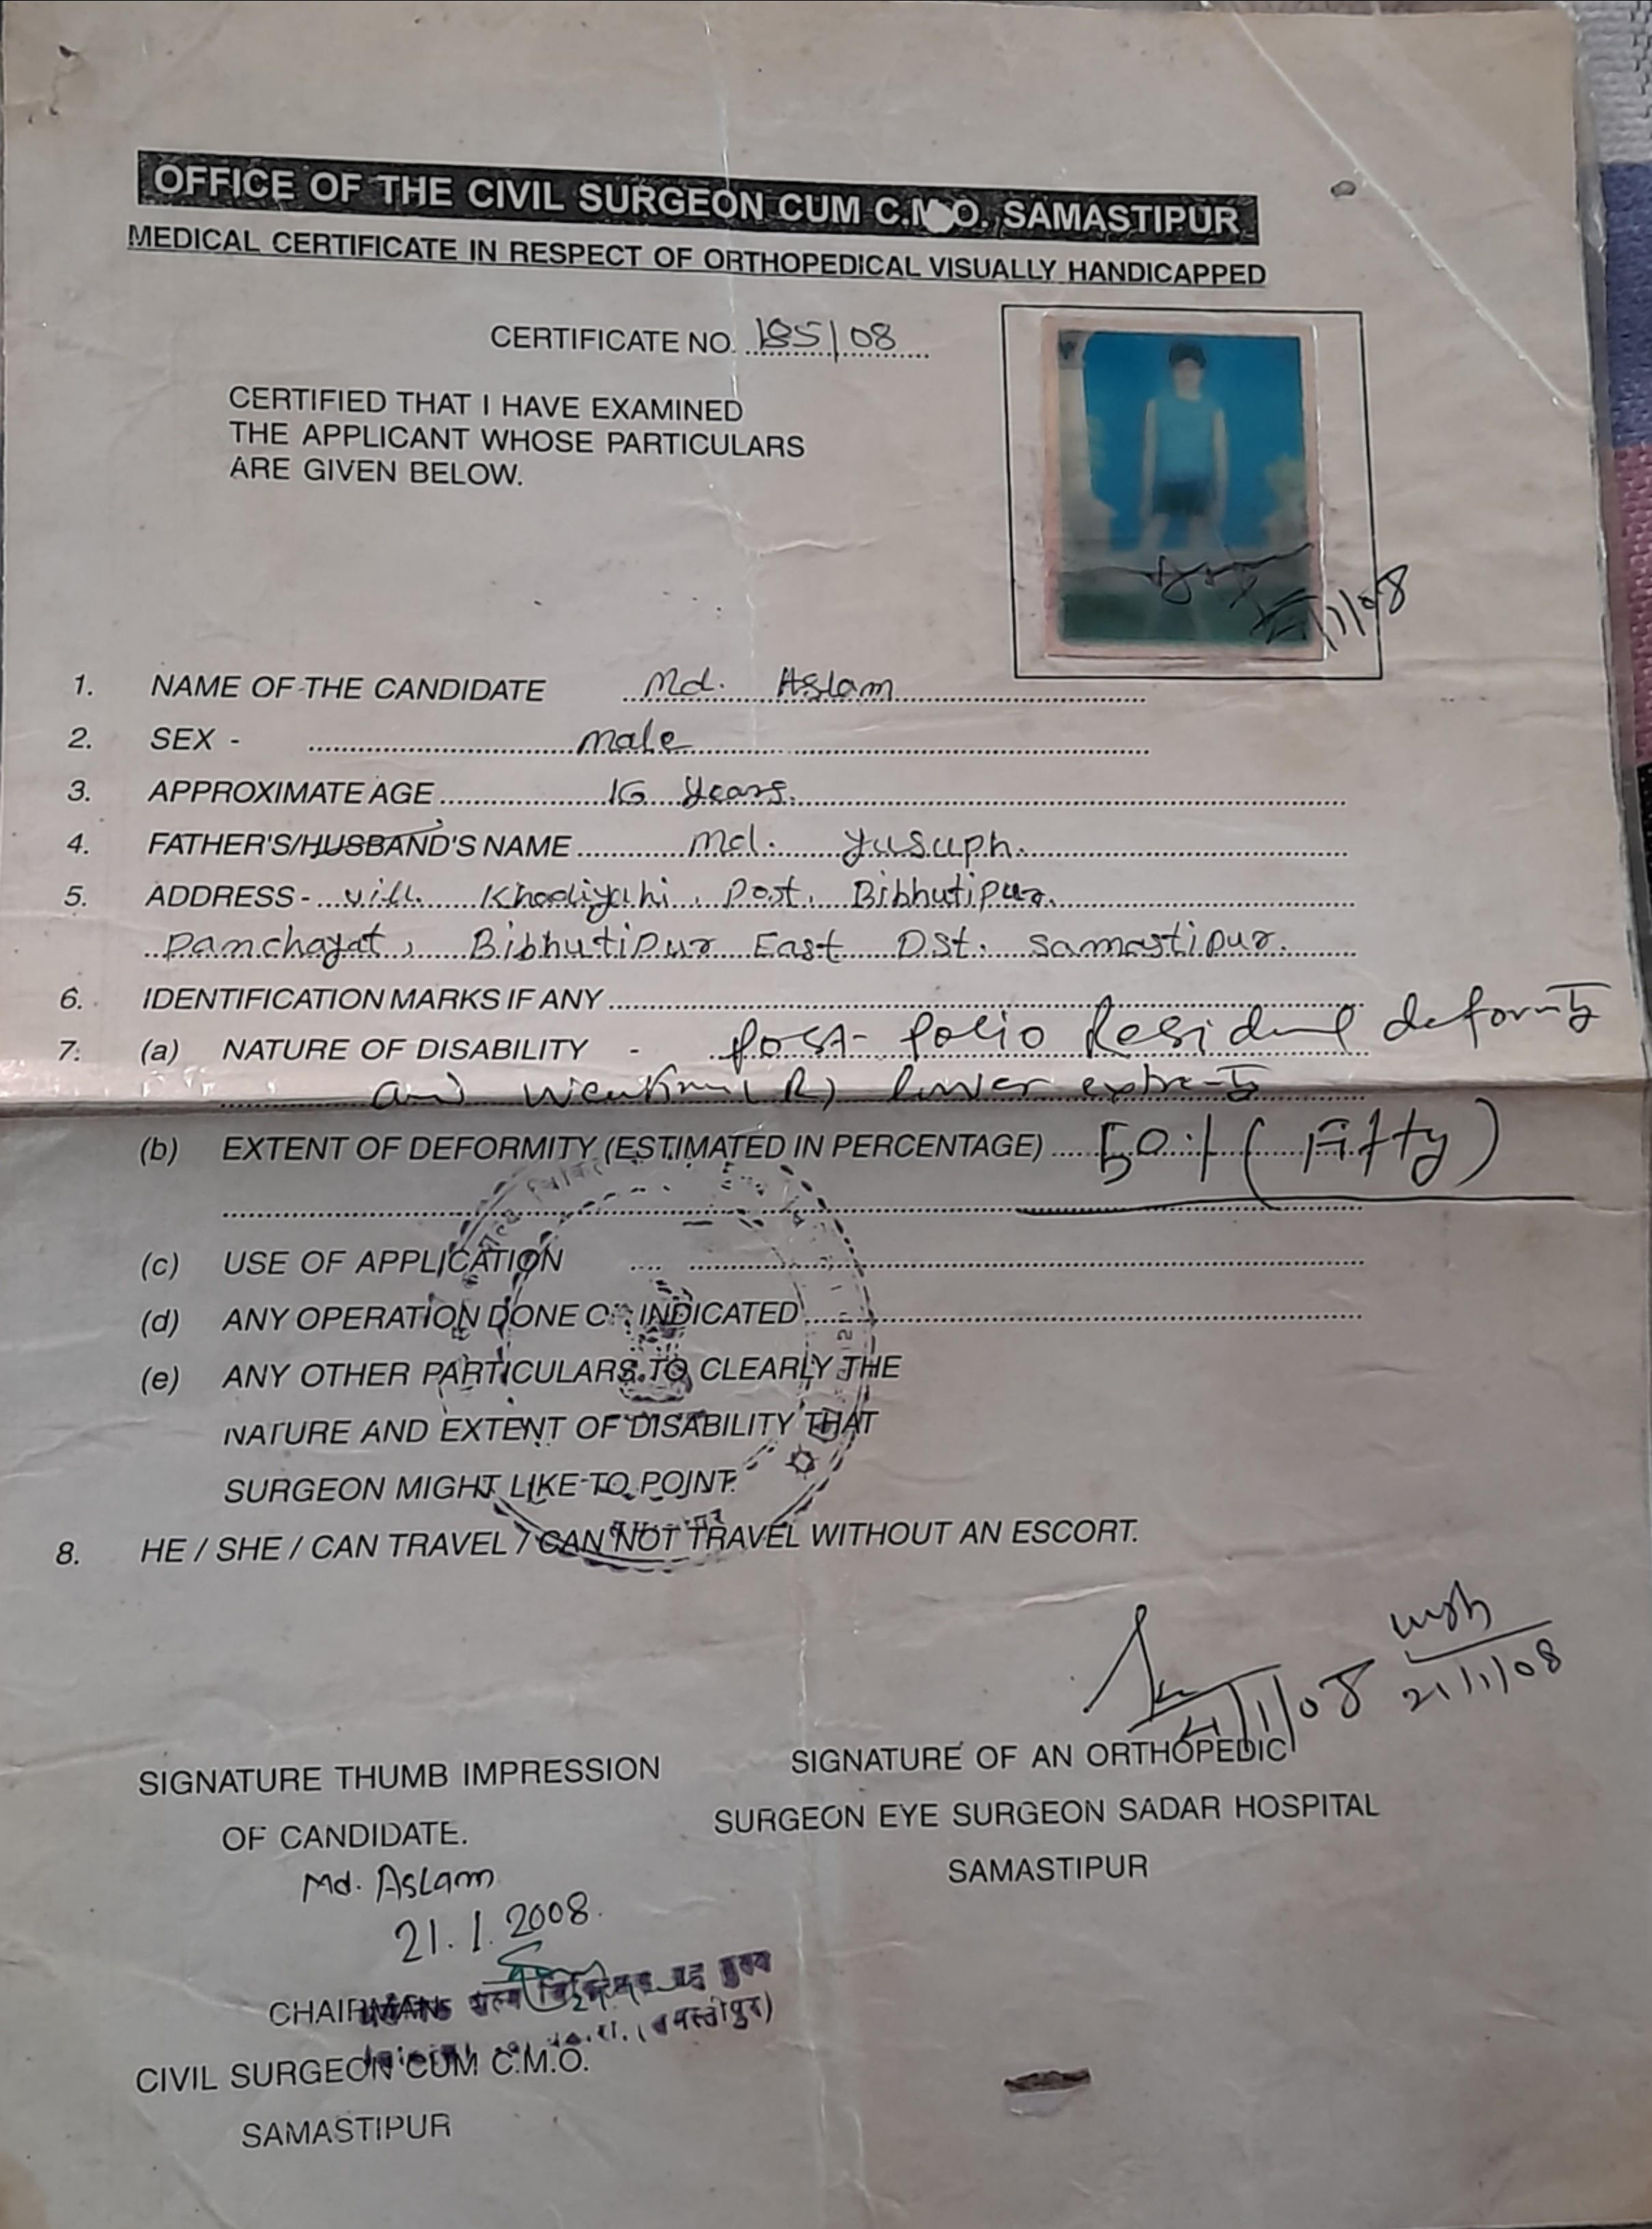 OFFICE OF THE CIVIL SURGEON CUM C.M.O., SAMASTIPUR
MEDICAL CERTIFICATE IN RESPECT OF ORTHOPEDICAL VISUALLY HANDICAPPED
CERTIFICATE NO. 185/08
CERTIFIED THAT I HAVE EXAMINED
THE APPLICANT WHOSE PARTICULARS
ARE GIVEN BELOW.
/1/08
1. NAME OF THE CANDIDATE Md. Aslam
2. SEX - male
3. APPROXIMATE AGE 16 years.
4. FATHER'S/HUSBAND'S NAME Md. Yusuph.
5. ADDRESS - vill. Khadiyahi, Post, Bibhutipur.
Panchayat, Bibhutipur East Dst. Samastipur.
6. IDENTIFICATION MARKS IF ANY
7. (a) NATURE OF DISABILITY - Post-Polio Residual deformity
and weakness (R) lower extremity
(b) EXTENT OF DEFORMITY (ESTIMATED IN PERCENTAGE) 50% (Fifty)
(c) USE OF APPLICATION
(d) ANY OPERATION DONE OR INDICATED
(e) ANY OTHER PARTICULARS TO CLEARLY THE
NATURE AND EXTENT OF DISABILITY THAT
SURGEON MIGHT LIKE TO POINT.
8. HE / SHE / CAN TRAVEL / CAN NOT TRAVEL WITHOUT AN ESCORT.
21/1/08
21/1/08
SIGNATURE THUMB IMPRESSION
OF CANDIDATE.
Md. Aslam
21.1.2008.
SIGNATURE OF AN ORTHOPEDIC
SURGEON EYE SURGEON SADAR HOSPITAL
SAMASTIPUR
CHAIRMAN
CIVIL SURGEON CUM C.M.O.
SAMASTIPUR